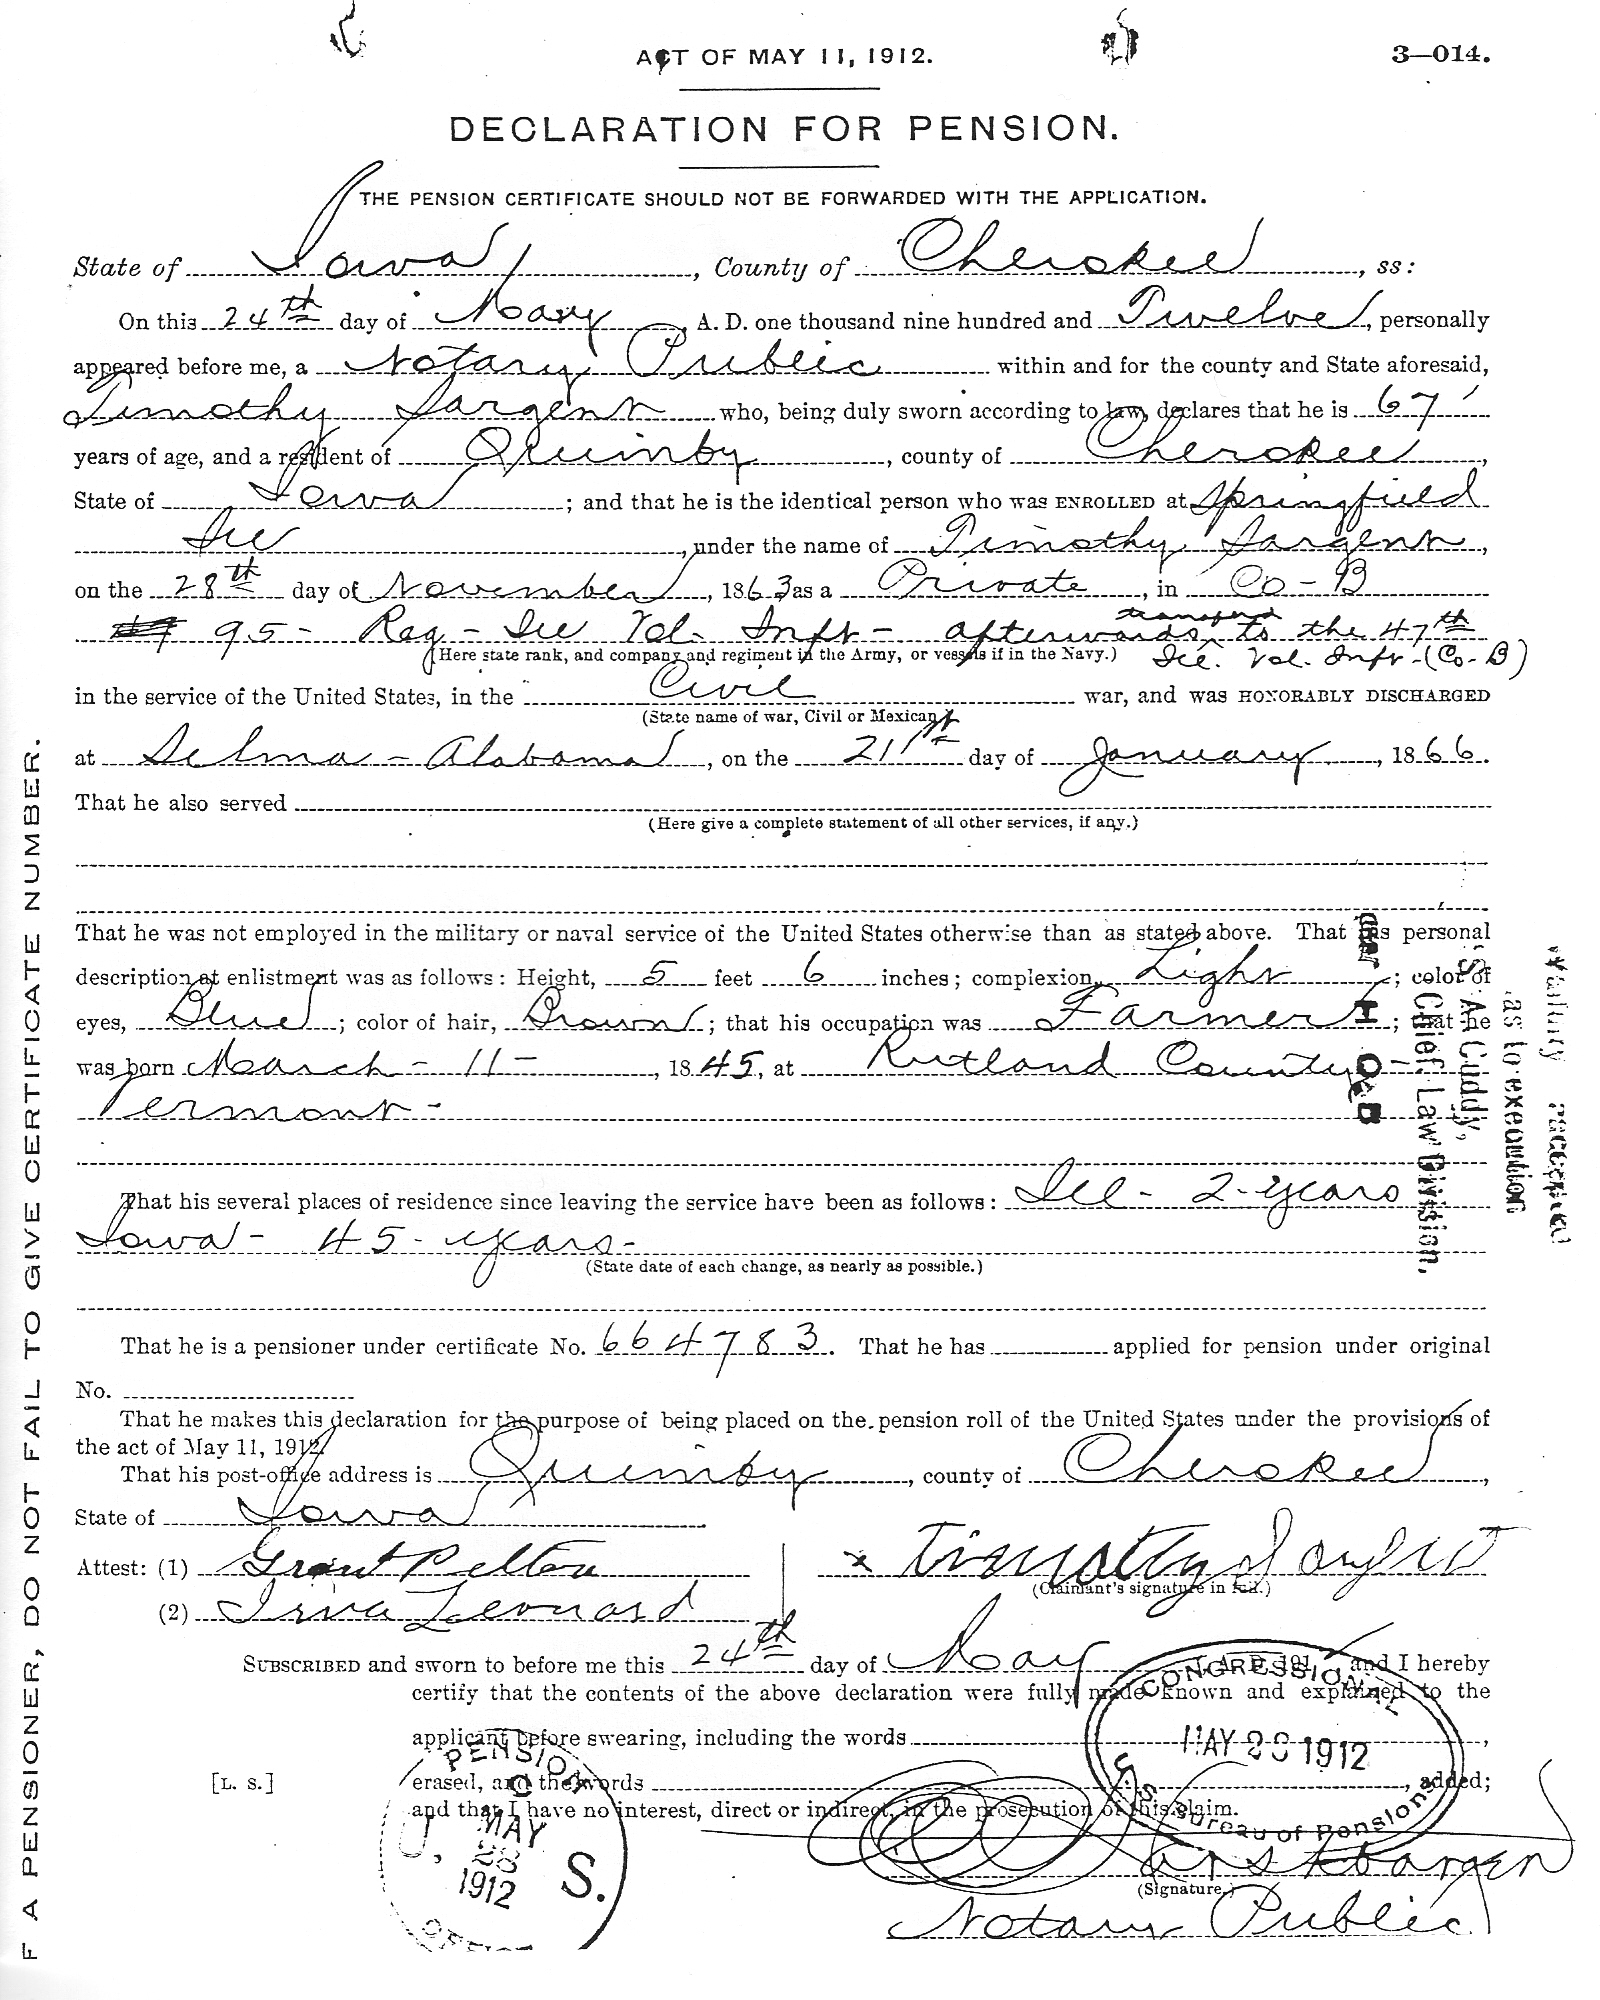 ACT OF MAY 11, 1912.
3—014.
DECLARATION FOR PENSION.
THE PENSION CERTIFICATE SHOULD NOT BE FORWARDED WITH THE APPLICATION.
State of Iowa, County of Cherokee, ss:
On this 24th day of May, A. D. one thousand nine hundred and Twelve, personally
appeared before me, a Notary Public within and for the county and State aforesaid,
Timothy Sargent who, being duly sworn according to law, declares that he is 67
years of age, and a resident of Quimby, county of Cherokee,
State of Iowa; and that he is the identical person who was ENROLLED at Springfield
Ill, under the name of Timothy Sargent,
on the 28th day of November, 1863 as a Private, in Co - B
95 - Reg - Ill Vol. Inft - afterwards transferd to the 47th
(Here state rank, and company and regiment in the Army, or vessels if in the Navy.) Ill. Vol. Inft - (Co - B)
in the service of the United States, in the Civil war, and was HONORABLY DISCHARGED
(State name of war, Civil or Mexican.)
at Selma - Alabama, on the 21st day of January, 1866.
That he also served
(Here give a complete statement of all other services, if any.)
That he was not employed in the military or naval service of the United States otherwise than as stated above. That his personal
description at enlistment was as follows: Height, 5 feet 6 inches; complexion, Light; color of
eyes, Blue; color of hair, Brown; that his occupation was Farmer; that he
was born March - 11 -, 1845, at Rutland County -
Vermont -
That his several places of residence since leaving the service have been as follows: Ill - 2 - years
Iowa - 45 - years -
(State date of each change, as nearly as possible.)
That he is a pensioner under certificate No. 664783. That he has applied for pension under original
No.
That he makes this declaration for the purpose of being placed on the pension roll of the United States under the provisions of
the act of May 11, 1912.
That his post-office address is Quimby, county of Cherokee,
State of Iowa
Attest: (1) Grant Pelton
x Timothy Sargent
(Claimant's signature in full.)
(2) Irva Leonard
SUBSCRIBED and sworn to before me this 24th day of May, A. D. 191 and I hereby
certify that the contents of the above declaration were fully made known and explained to the
applicant before swearing, including the words,
[L. S.] erased, and the words, added;
and that I have no interest, direct or indirect, in the prosecution of this claim.
(Signature.)
Notary Public
CONGRESSIONAL
MAY 28 1912
U. S. Bureau of Pensions
U. S. PENSION OFFICE
MAY 28 1912
as to execution
S. A. Cuddy,
Chief. Law Division.
F A PENSIONER, DO NOT FAIL TO GIVE CERTIFICATE NUMBER.